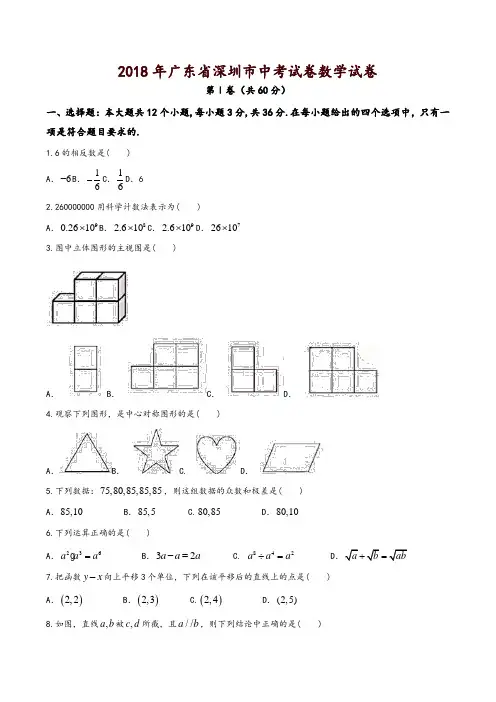 2018年广东省深圳市中考试卷数学试卷
第Ⅰ卷（共60分）
一、选择题：本大题共12个小题,每小题3分,共36分.在每小题给出的四个选项中，只有一
项是符合题目要求的.
1.6的相反数是( )
A．−6B．−1/6 C．1/6 D．6
2.260000000用科学计数法表示为( )
A．0.26×10⁹B．2.6×10⁸C．2.6×10⁹D．26×10⁷
3.图中立体图形的主视图是( )
A． B． C． D．
4.观察下列图形，是中心对称图形的是( )
A． B． C. D．
5.下列数据：75,80,85,85,85，则这组数据的众数和极差是( )
A．85,10 B．85,5 C.80,85 D．80,10
6.下列运算正确的是( )
A．a²ga³=a⁶ B．3a−a=2a C. a⁸÷a⁴=a² D．√a+√b=√ab
7.把函数y−x向上平移3个单位，下列在该平移后的直线上的点是( )
A．(2,2) B．(2,3) C.(2,4) D．(2,5)
8.如图，直线a,b被c,d所截，且a//b，则下列结论中正确的是( )